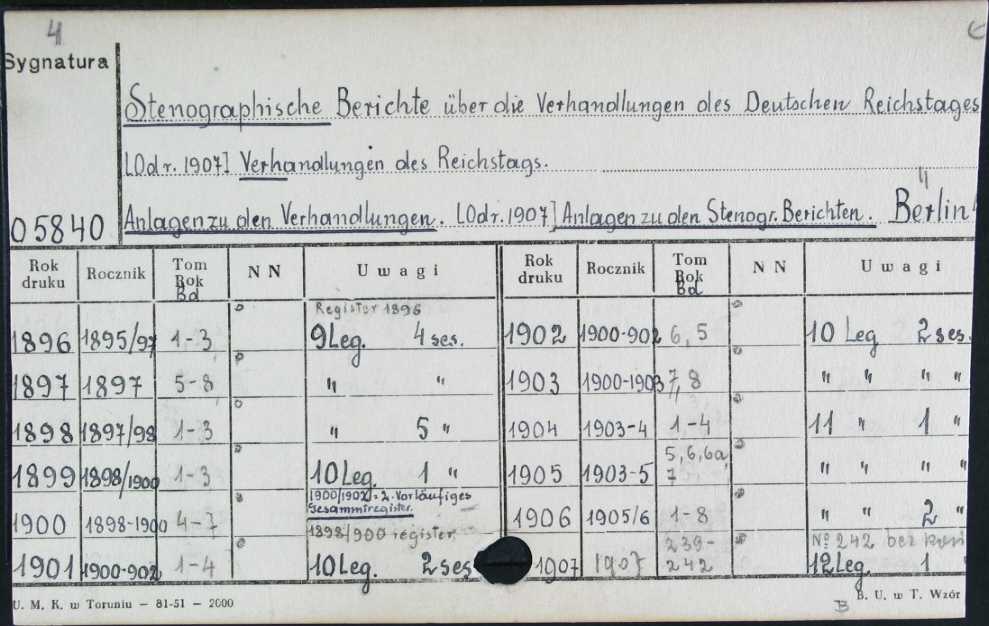 4
Sygnatura
Stenographische Berichte über die Verhandlungen des Deutschen Reichstages
[Od r. 1907] Verhandlungen des Reichstags.
05840 Anlagen zu den Verhandlungen. [Od r. 1907] Anlagen zu den Stenogr. Berichten. Berlin
Rok druku Rocznik Tom Rok Bd N N Uwagi Rok druku Rocznik Tom Rok Bd N N Uwagi
Register 1896
1896 1895/97 1-3 9 Leg. 4 ses. 1902 1900-902 6, 5 10 Leg 2 ses.
1897 1897 5-8 " " 1903 1900-1903 7, 8 " " " "
1898 1897/98 1-3 " 5 " 1904 1903-4 1-4 11 " 1 "
1899 1898/1900 1-3 10 Leg. 1 " 1905 1903-5 5, 6, 6a, 7 " " " "
1900/1902 = 2. Vorläufiges Gesammtregister.
1900 1898-1900 4-7 1898/900 register. 1906 1905/6 1-8 " " 2 "
1901 1900-902 1-4 10 Leg. 2 ses 1907 1907 239-242 Nº 242 bez 12 Leg 1 "
U. M. K. w Toruniu – 81-51 – 2000
B B. U. w T. Wzór